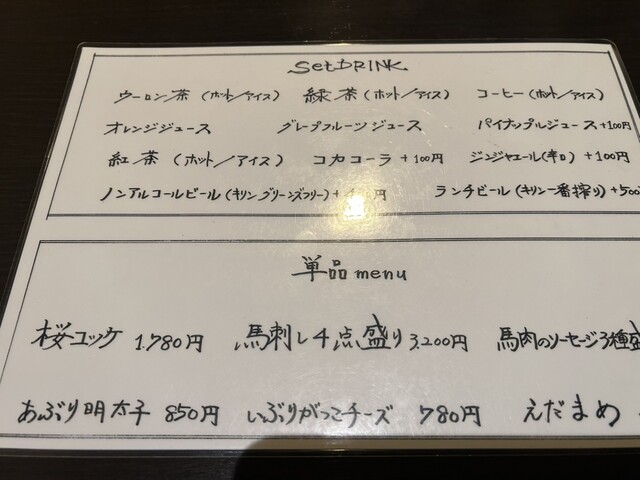 SetDRINK
ウーロン茶(ホット/アイス) 緑茶(ホット/アイス) コーヒー(ホット/アイス)
オレンジジュース グレープフルーツジュース パイナップルジュース+100円
紅茶(ホット/アイス) コカコーラ+100円 ジンジャエール(辛口)+100円
ノンアルコールビール(キリングリーンズフリー)+ 円 ランチビール(キリン一番搾り)+500
単品menu
桜ユッケ 1.780円 馬刺し4点盛り 3.200円 馬肉のソーセージ3種盛
あぶり明太子 850円 いぶりがっこチーズ 780円 えだまめ